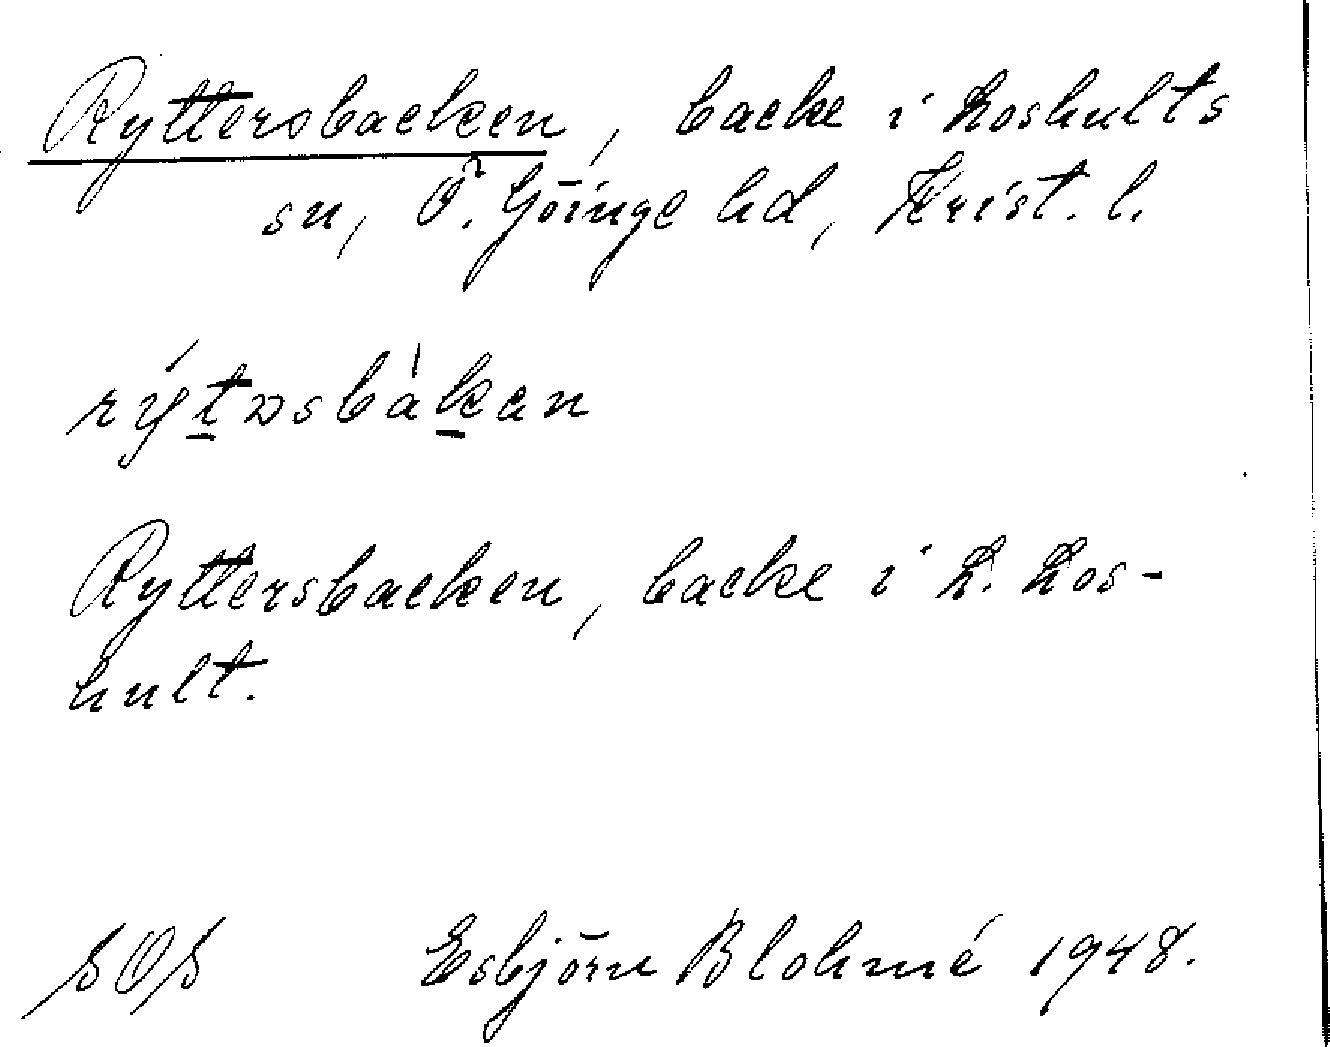 Ryttersbacken, backe i Loshults
sn, Ö. Göinge hd, Krist. l.
rýtɒsbàkan
Ryttersbacken, backe i L. Los-
hult.
SOS Esbjörn Blohmé 1948.